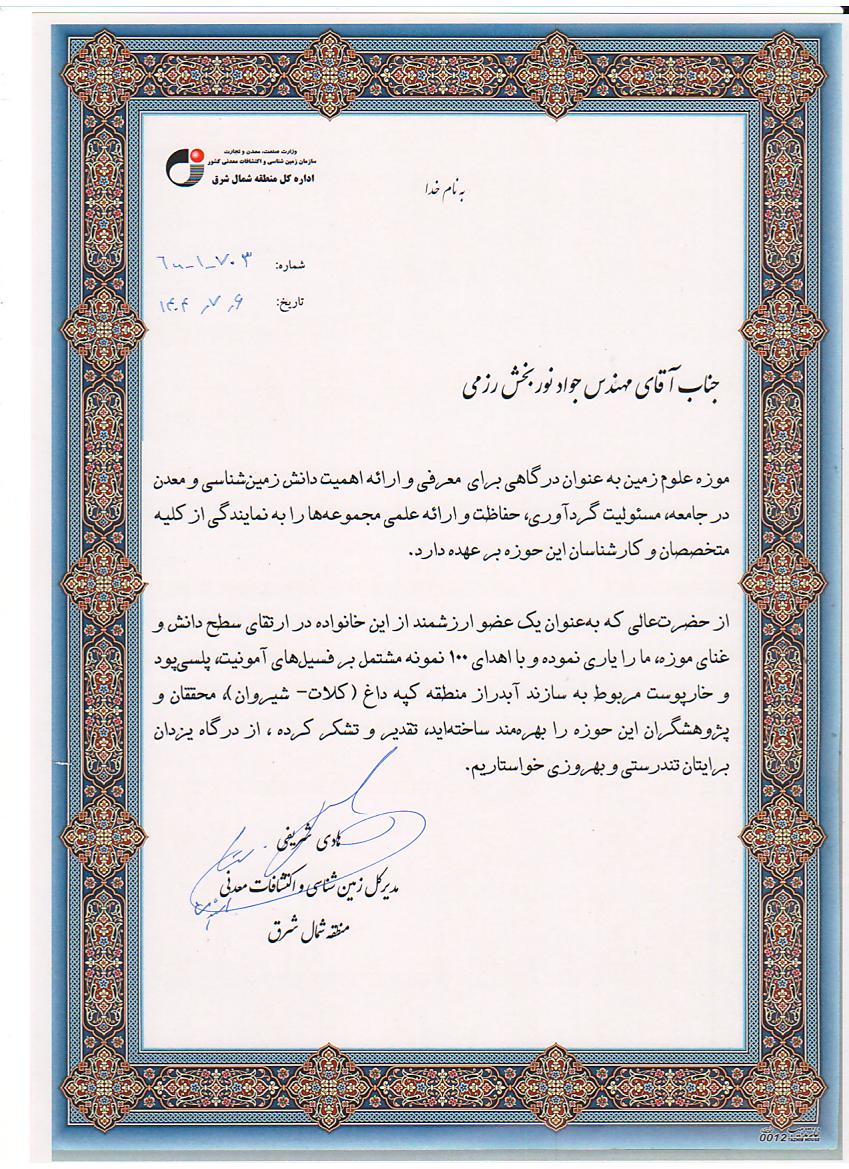 وزارت صنعت، معدن و تجارت
سازمان زمین شناسی و اکتشافات معدنی کشور
اداره کل منطقه شمال شرق
به نام خدا
شماره: ۷۰۳-۱-
تاریخ: ۱۴۰۴٫۷٫۶
جناب آقای مهندس جواد نوربخش رزمی
موزه علوم زمین به عنوان درگاهی برای معرفی و ارائه اهمیت دانش زمین‌شناسی و معدن
در جامعه، مسئولیت گردآوری، حفاظت و ارائه علمی مجموعه‌ها را به نمایندگی از کلیه
متخصصان و کارشناسان این حوزه بر عهده دارد.
از حضرت‌عالی که به‌عنوان یک عضو ارزشمند از این خانواده در ارتقای سطح دانش و
غنای موزه، ما را یاری نموده و با اهدای ۱۰۰ نمونه مشتمل بر فسیل‌های آمونیت، پلسی‌پود
و خارپوست مربوط به سازند آبدراز منطقه کپه داغ (کلات- شیروان)، محققان و
پژوهشگران این حوزه را بهره‌مند ساخته‌اید، تقدیر و تشکر کرده ، از درگاه یزدان
برایتان تندرستی و بهروزی خواستاریم.
هادی شریفی
مدیرکل زمین شناسی و اکتشافات معدنی
منطقه شمال شرق
0012